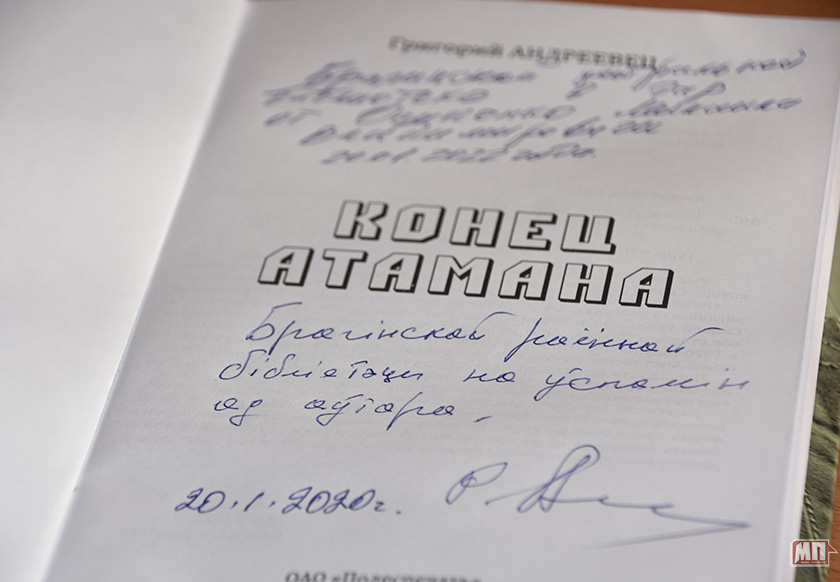 Григорий АНДРЕЕВЕЦ
Брагинской центральной
библиотеке в дар
от
Владимировны
20.01.2022 года.
КОНЕЦ
АТАМАНА
Брагінскай раённай
бібліятэцы на ўспамін
ад аўтара.
20.1.2020г.
ОАО «Полеспечать»
МП